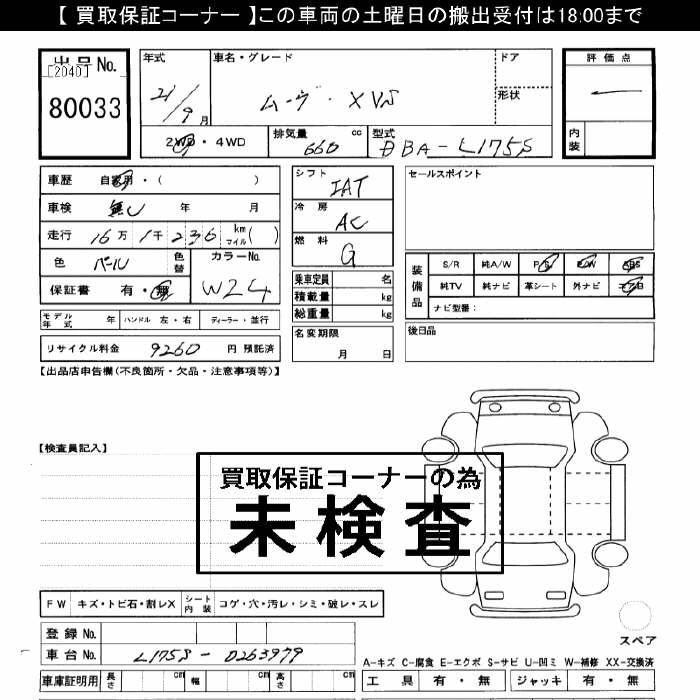 【 買取保証コーナー 】この車両の土曜日の搬出受付は18:00まで
出品No.
[2040]
80033
年式
21/9月
車名・グレード
ムーヴ・XVS
ドア
形状
評価点
内装
2WD・4WD
排気量 660 cc
型式 DBA-L175S
車歴 自家用・( )
車検 無し 年 月
走行 16万 1千 236 km マイル( )
色 パール 色替
カラーNo. W24
保証書 有・無
シフト IAT
冷房 AC
燃料 G
乗車定員 名
積載量 kg
総重量 kg
セールスポイント
装備品
S/R 純A/W P/S P/W ABS
純TV 純ナビ 革シート 外ナビ エアB
ナビ型番:
モデル年式 年 ハンドル 左・右 ディーラー・並行
名変期限 月 日
後日品
リサイクル料金 9260 円 預託済
【出品店申告欄(不良箇所・欠品・注意事項等)】
【検査員記入】
買取保証コーナーの為
未検査
FW キズ・トビ石・割レX シート内装 コゲ・穴・汚レ・シミ・破レ・スレ
登録 No.
車台 No. L175S-0263979
スペア
A-キズ C-腐食 E-エクボ S-サビ U-凹ミ W-補修 XX-交換済
車庫証明用 長さ cm 幅 cm 高さ cm
工具 有・無 ジャッキ 有・無